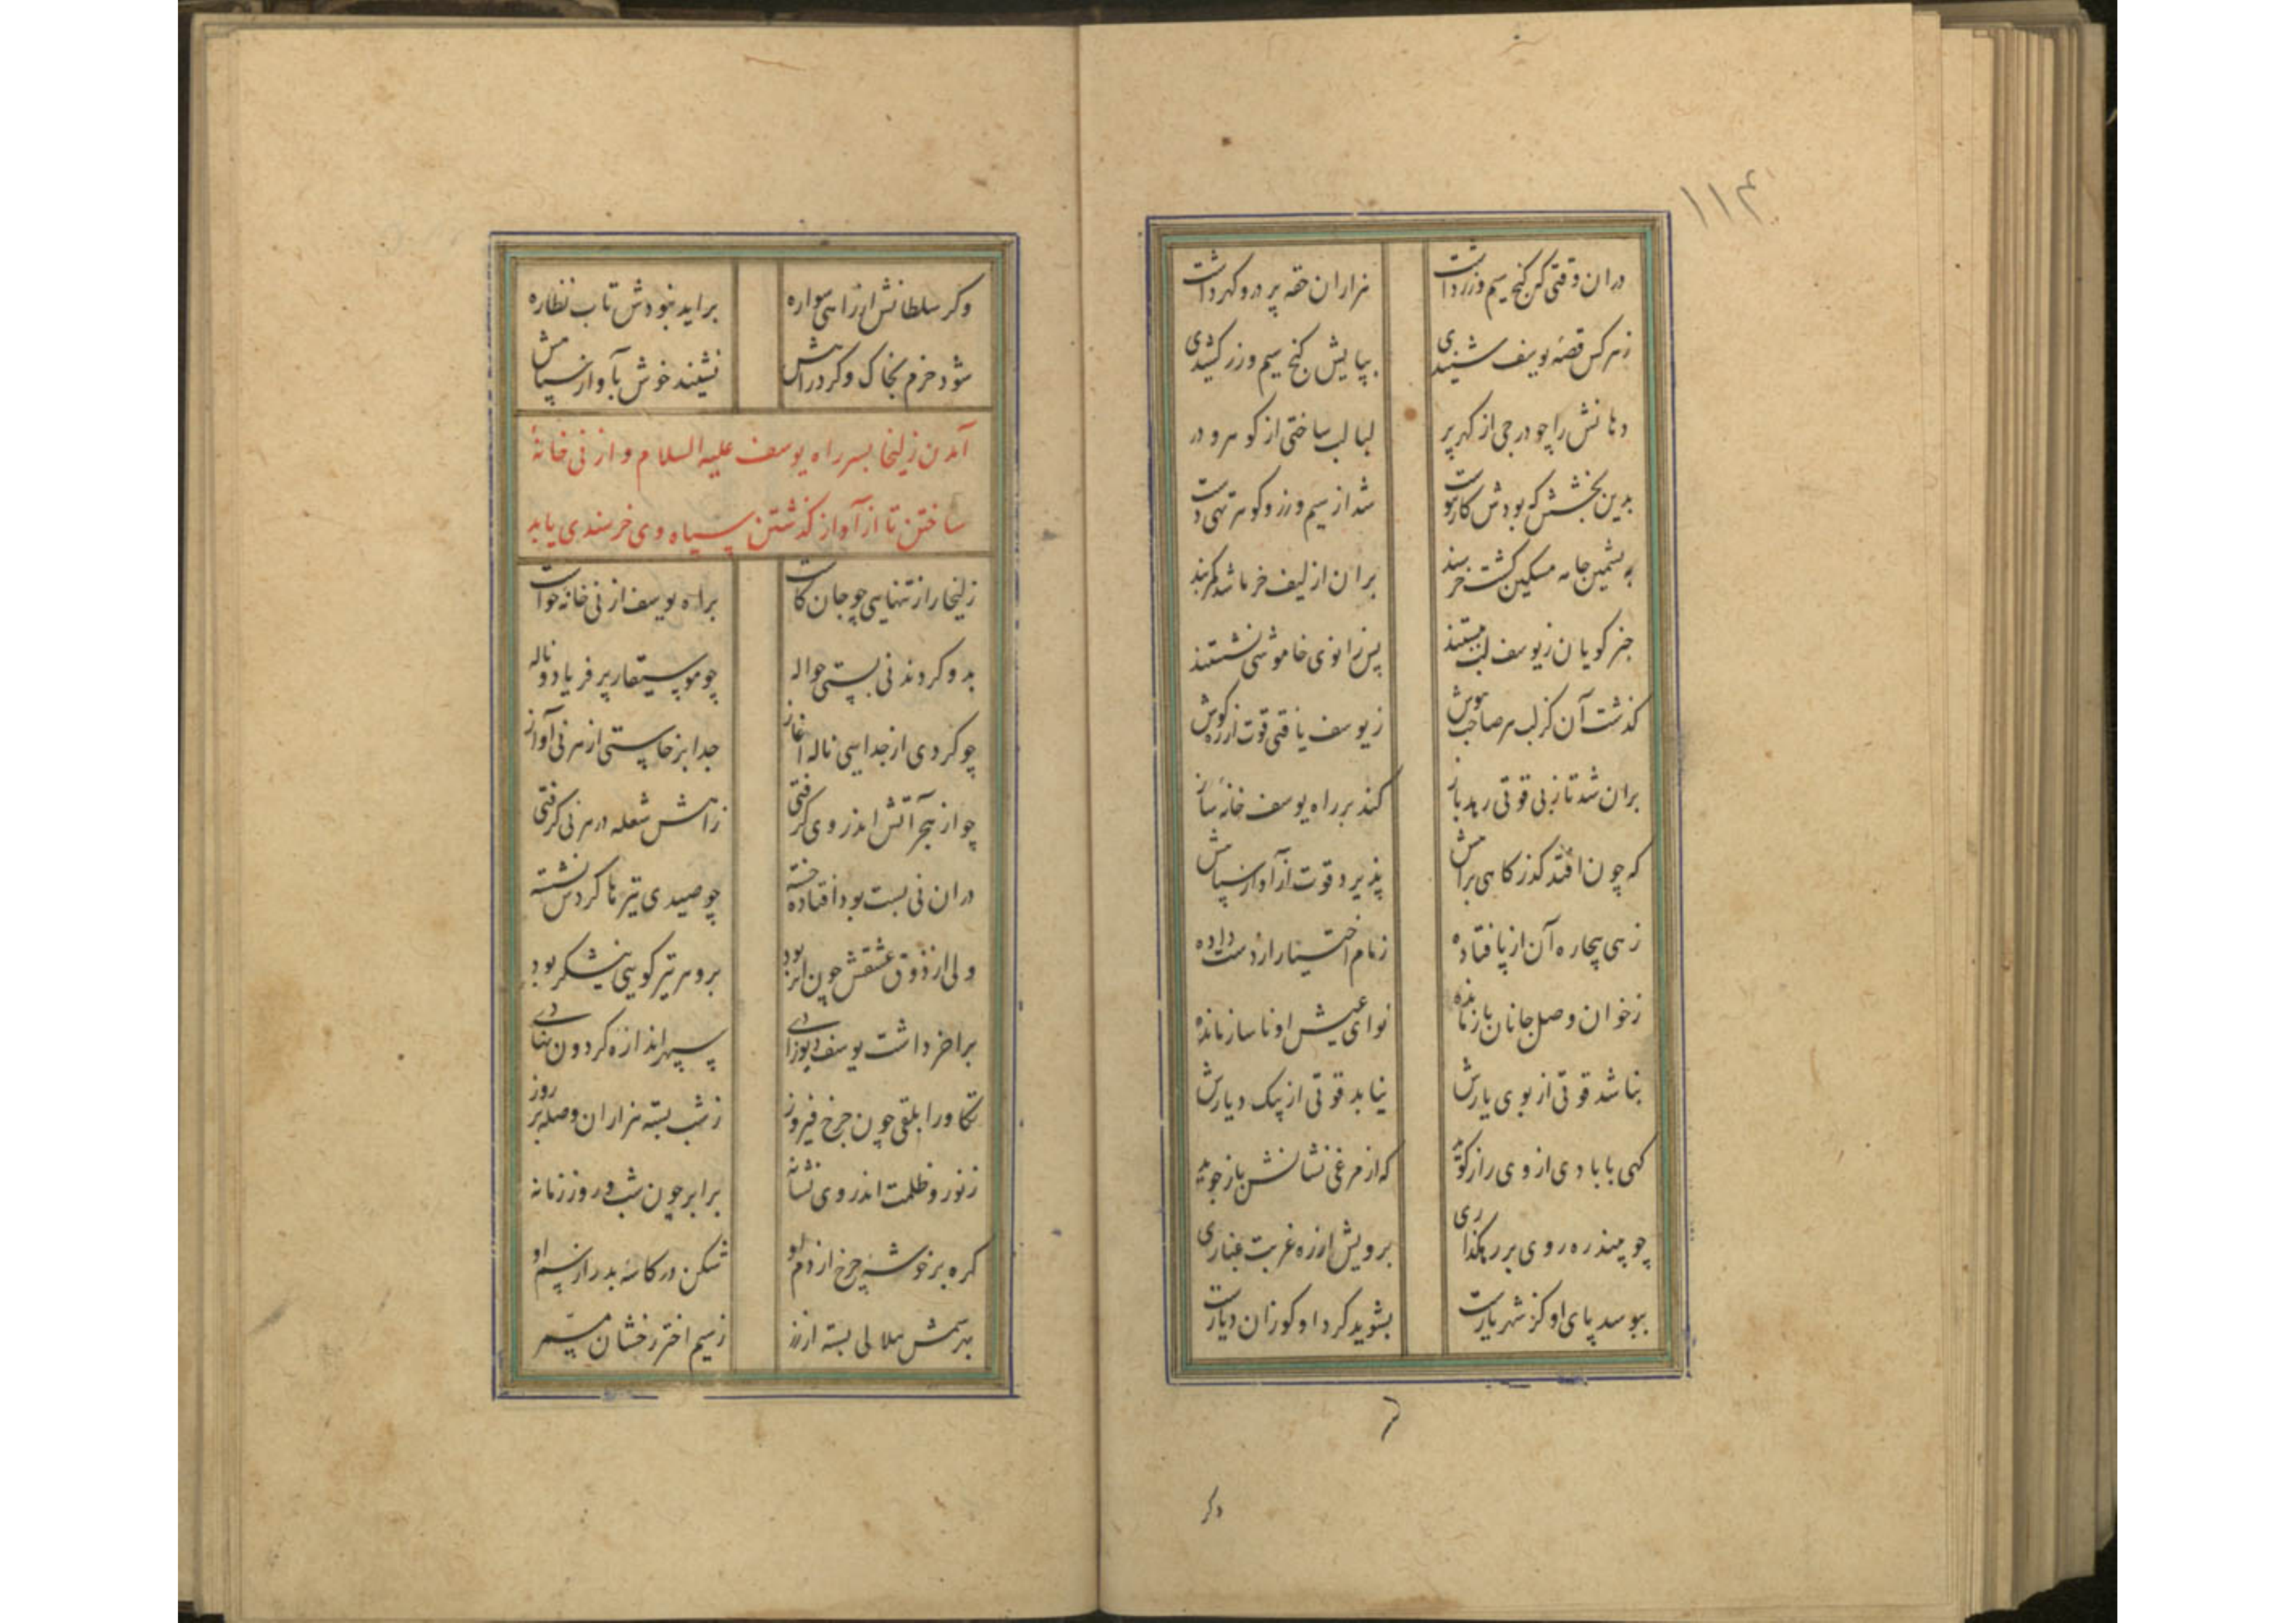 ۱۱۴
دران وقتی کش گنج سیم و زر داشت هزاران حقه پر در و گهر داشت
زهر کس قصهٔ یوسف شنیدی بپایش گنج سیم و زر کشیدی
دهانش را چو درجی از گهر پر لبالب ساختی از گوهر و در
بدین بخشش که بودش کار پیوست شد از سیم و زر و گوهر تهی دست
به پشمین جامه مسکین گشت خرسند بران از لیف خرما شد کمربند
خبر گویان ز یوسف لب ببستند پس زانوی خاموشی نشستند
گذشت آن کز لب هر صاحب هوش ز یوسف یافتی قوت از ره گوش
بران شد تا ز بی قوتی رهد باز کند بر راه یوسف خانهٔ ساز
که چون افتد گذر گاهی براهش پذیرد قوت از آواز سپاهش
زهی بیچاره آن از پا فتاده زمام اختیار از دست داده
ز خوان وصل جانان باز مانده نوای عیش او ناساز مانده
نباشد قوتی از بوی یارش نیابد قوتی از پیک دیارش
گهی با بادی از وی راز گوید که از مرغی نشانش باز جوید
چو بیند ره روی بر رهگذاری برویش از ره غربت غباری
ببوسد پای او کز شهر یارست بشوید گرد او کو زان دیارست
وگر
وگر سلطانش از راهی سواره براید نبودش تاب نظاره
شود خرم بخاک و گرد راهش نشیند خوش بآواز سپاهش
آمدن زلیخا بسر راه یوسف علیه السلام و از نی خانهٔ
ساختن تا از آواز گذشتن سپاه وی خرسندی یابد
زلیخا را ز تنهایی چو جان کاست براه یوسف از نی خانه خواست
بدو کردند نی بستی حواله چو موسیقار پر فریاد و ناله
چو کردی از جدایی ناله آغاز جدا برخاستی از هر نی آواز
چو از هجر آتش اندر وی گرفتی ز آهش شعله در هر نی گرفتی
دران نی بست بود افتاده خسته چو صیدی تیرها گردش نشسته
ولی از ذوق عشقش چون اثر بود برو هر تیر گویی نیشکر بود
براخر داشت یوسف دیوزادی سپهر اندازه گردون نهادی
تکاور ابلقی چون چرخ فیروز ز شب بسته هزاران وصله بر روز
ز نور و ظلمت اندر وی نشانه برابر چون شب و روز زمانه
گره بر خوشهٔ چرخ از دم او شکن در کاسهٔ بدر از سم او
بهر سمش هلالی بسته از زر ز سیم اختر رخشان